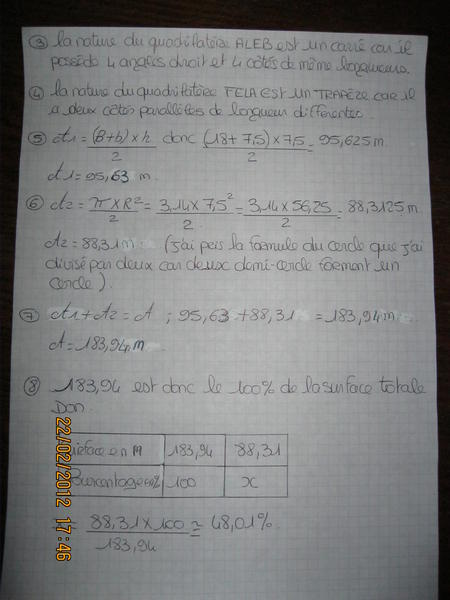 ③ la nature du quadrilatère ALEB est un carré car il
possède 4 angles droit et 4 côtés de même longueurs.
④ la nature du quadrilatère FELA EST UN TRAPÈZE car il
a deux côtés parallèles de longueur differentes.
⑤ A1 = (B+b)×h / 2 donc (18+7,5)×7,5 / 2 = 95,625 m
A1 = 95,63 m
⑥ A2 = π×R² / 2 = 3,14×7,5² / 2 = 3,14×56,25 / 2 = 88,3125 m
A2 = 88,31 m (j'ai pris la formule du cercle que j'ai
divisé par deux car deux demi-cercle forment un
cercle).
⑦ A1+A2 = A ; 95,63+88,31 = 183,94 m
A = 183,94 m
⑧ 183,94 est donc le 100% de la surface totale
Don
en m 183,94 88,31
Pourcentage en % 100 x
88,31×100 / 183,94 ≈ 48,01%.
22/02/2012 17:46